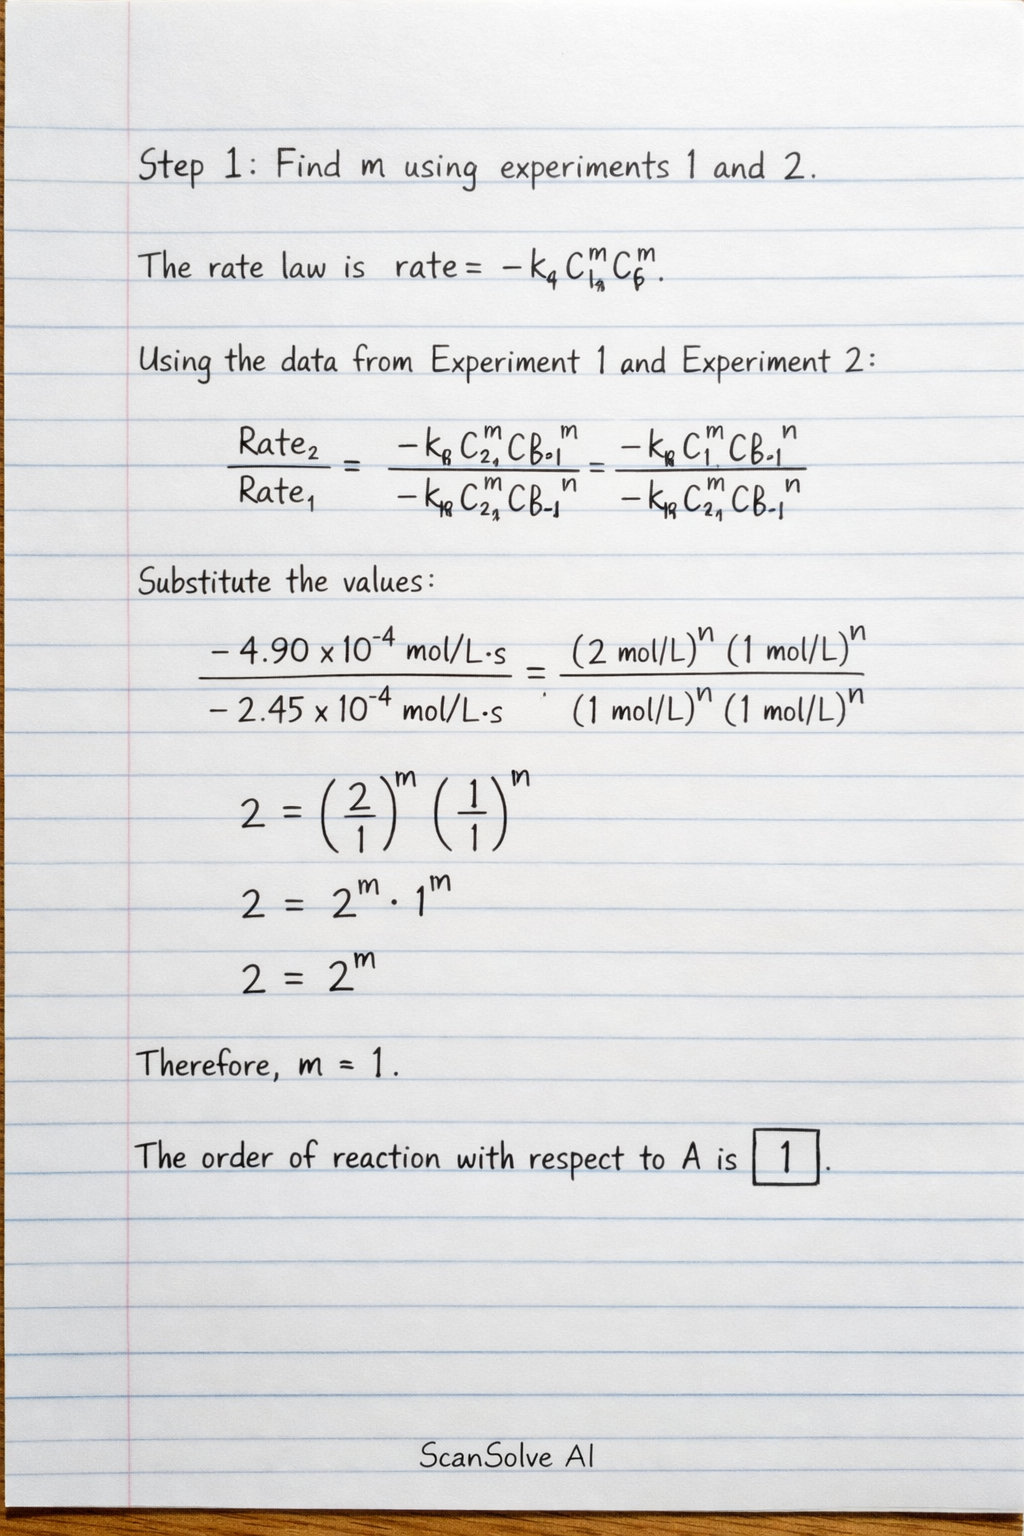 Step 1: Find m using experiments 1 and 2.
The rate law is rate = −k₄ C₁ₐᵐ C₆ᵐ.
Using the data from Experiment 1 and Experiment 2:
Rate₂ / Rate₁ = −k C₂,ᵐ CB·₁ᵐ / −k C₂ᵐ CB-₁ⁿ = −k C₁ᵐ CB-₁ⁿ / −k C₂,ᵐ CB-₁ⁿ
Substitute the values:
− 4.90 x 10⁻⁴ mol/L·s / − 2.45 x 10⁻⁴ mol/L·s = (2 mol/L)ⁿ (1 mol/L)ⁿ / (1 mol/L)ⁿ (1 mol/L)ⁿ
2 = (2/1)ᵐ (1/1)ᵐ
2 = 2ᵐ · 1ᵐ
2 = 2ᵐ
Therefore, m = 1.
The order of reaction with respect to A is 1.
ScanSolve AI